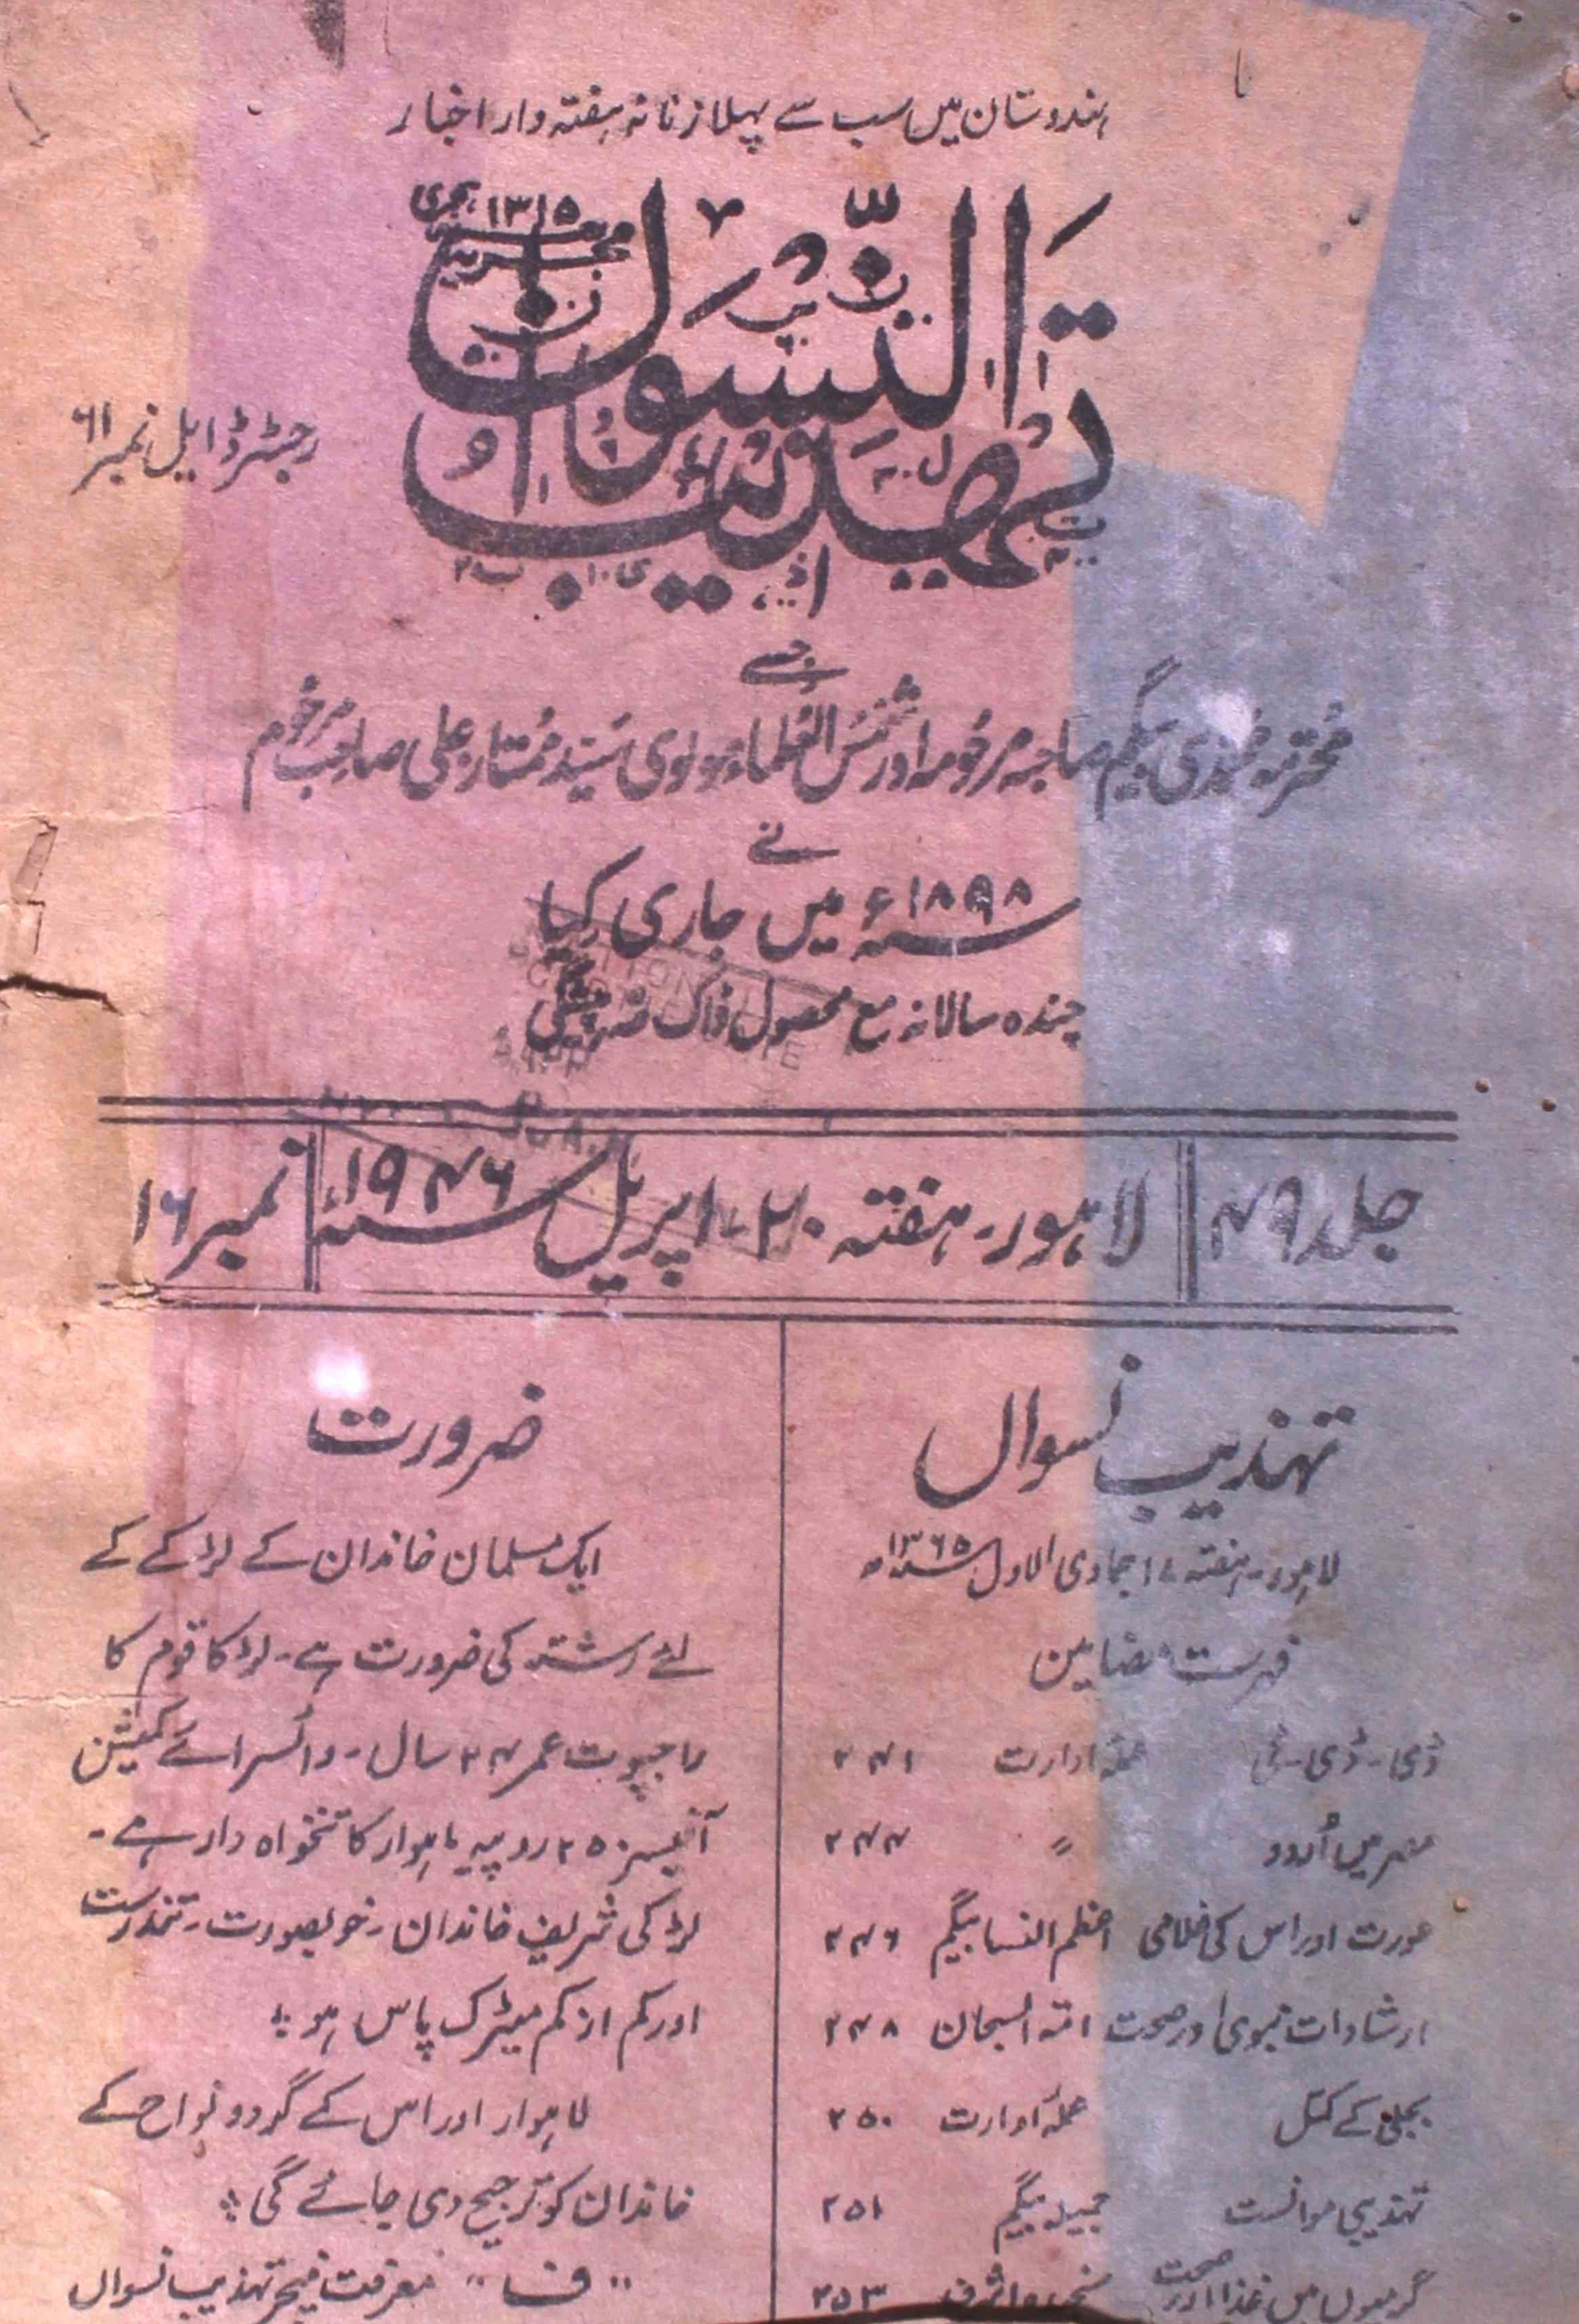 ہندوستان میں سب سے پہلا زنانہ ہفتہ وار اخبار
۱۳۱۵ ہجری
تہذیب النسواں
رجسٹرڈ ایل نمبر ۶۱
جسے
محترمہ محمدی بیگم صاحبہ مرحومہ اور شمس العلماء مولوی سید ممتاز علی صاحب مرحوم
نے
سنہ ۱۸۹۸ء میں جاری کیا
چندہ سالانہ مع محصول ڈاک پیشگی
جلد ۴۹
لاہور - ہفتہ ۲۰ - اپریل سنہ ۱۹۴۶ء
نمبر ۱۶
تہذیب نسواں
لاہور - ہفتہ ۱۷ جمادی الاول سنہ ۱۳۶۵ ھ
فہرست مضامین
ڈی - ڈی - ٹی عملہ ادارت ۲۴۱
مصر میں اُردو " ۲۴۴
عورت اور اس کی غلامی اعظم النسا بیگم ۲۴۶
ارشادات نبوی اور صحت امتہ السبحان ۲۴۸
بجلی کے کمبل عملہ ادارت ۲۵۰
تہذیبی موانست جمیلہ بیگم ۲۵۱
گرمیوں میں غذا اور صحت اشرف ۲۵۳
ضرورت
ایک مسلمان خاندان کے لڑکے کے
لئے رشتہ کی ضرورت ہے - لڑکا قوم کا
راجپوت عمر ۲۴ سال - وائسرائے کمیشن
آفیسر ۲۵۰ روپیہ ماہوار کا تنخواہ دار ہے -
لڑکی شریف خاندان - خوبصورت - تندرست
اور کم از کم میٹرک پاس ہو ؛
لاہوار اور اس کے گردو نواح کے
خاندان کو ترجیح دی جائے گی ؛
"ف" معرفت منیجر تہذیب نسواں